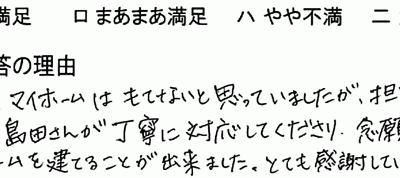 満足　ロ まあまあ満足　ハ やや不満　ニ
答の理由
マイホームは もてないと思っていましたが、担
島田さんが丁寧に対応してくださり、念願
ームを建てることが出来ました。とても感謝してい